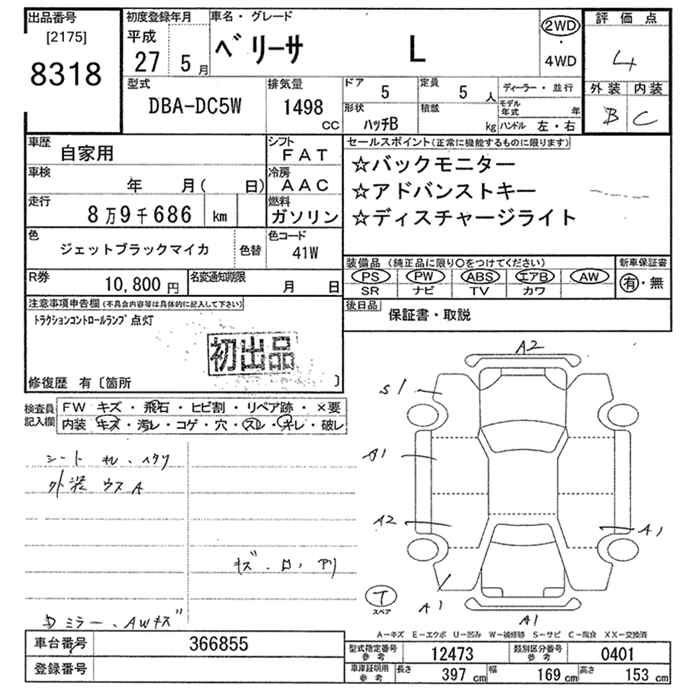 出品番号 初度登録年月 車名・グレード 評価点
[2175] 平成
8318 27 5月 ベリーサ L 2WD 4WD 4
外装 内装
B C
型式 排気量 ドア 定員 ディーラー・並行
DBA-DC5W 1498 CC 5 5 人 モデル年式 年
形状 積載
ハッチB kg ハンドル 左・右
車歴 シフト セールスポイント(正常に機能するものに限ります)
自家用 FAT ☆バックモニター
車検 冷房
年 月( 日) AAC ☆アドバンストキー
走行 燃料
8万9千686 km ガソリン ☆ディスチャージライト
色 色コード
ジェットブラックマイカ 色替 41W
装備品(純正品に限り○をつけてください) 新車保証書
PS PW ABS エアB AW 有・無
SR ナビ TV カワ
R券 10,800円 名変通知期限 月 日
後日品 保証書・取説
注意事項申告欄(不具合内容等は具体的に記入して下さい)
トラクションコントロールランプ点灯
初出品
修復歴 有〔箇所 〕
検査員記入欄 FW キズ・飛石・ヒビ割・リペア跡・×要
内装 キズ・汚レ・コゲ・穴・スレ・キレ・破レ
シート
外装 ウスA
ミラー、AWキズ
A2
S1
A1
A2
A1
A1
A1
T
スペア
A-キズ E-エクボ U-凹み W-補修跡 S-サビ C-腐食 XX-交換済
車台番号 366855
登録番号
型式指定番号 参考 12473 類別区分番号 参考 0401
車庫証明用 参考 長さ 397 cm 幅 169 cm 高さ 153 cm